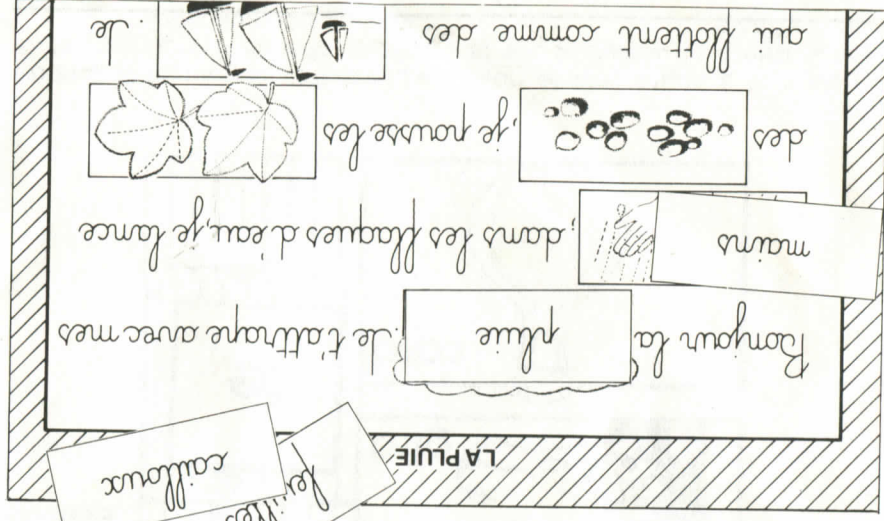 LA PLUIE
cailloux
feuilles
Bonjour la pluie. Je t'attrape avec mes
mains ; dans les flaques d'eau, je lance
des , je pousse les
qui flottent comme des . Je